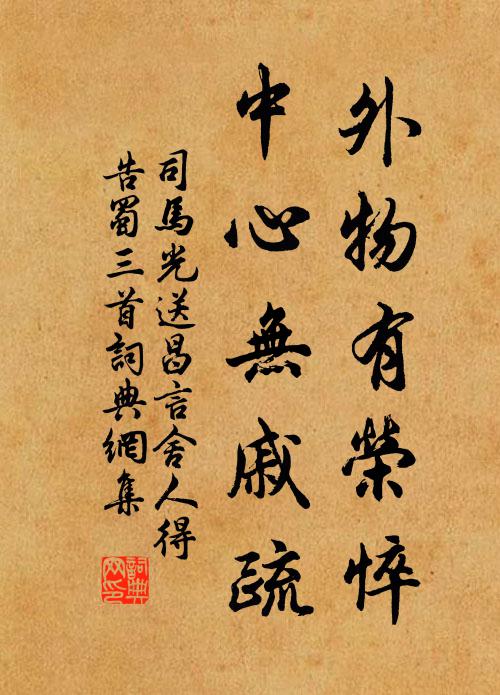 外物有榮悴
中心無戚疏
司馬光送昌言舍人得
告蜀三首詞典網集
詞典网印